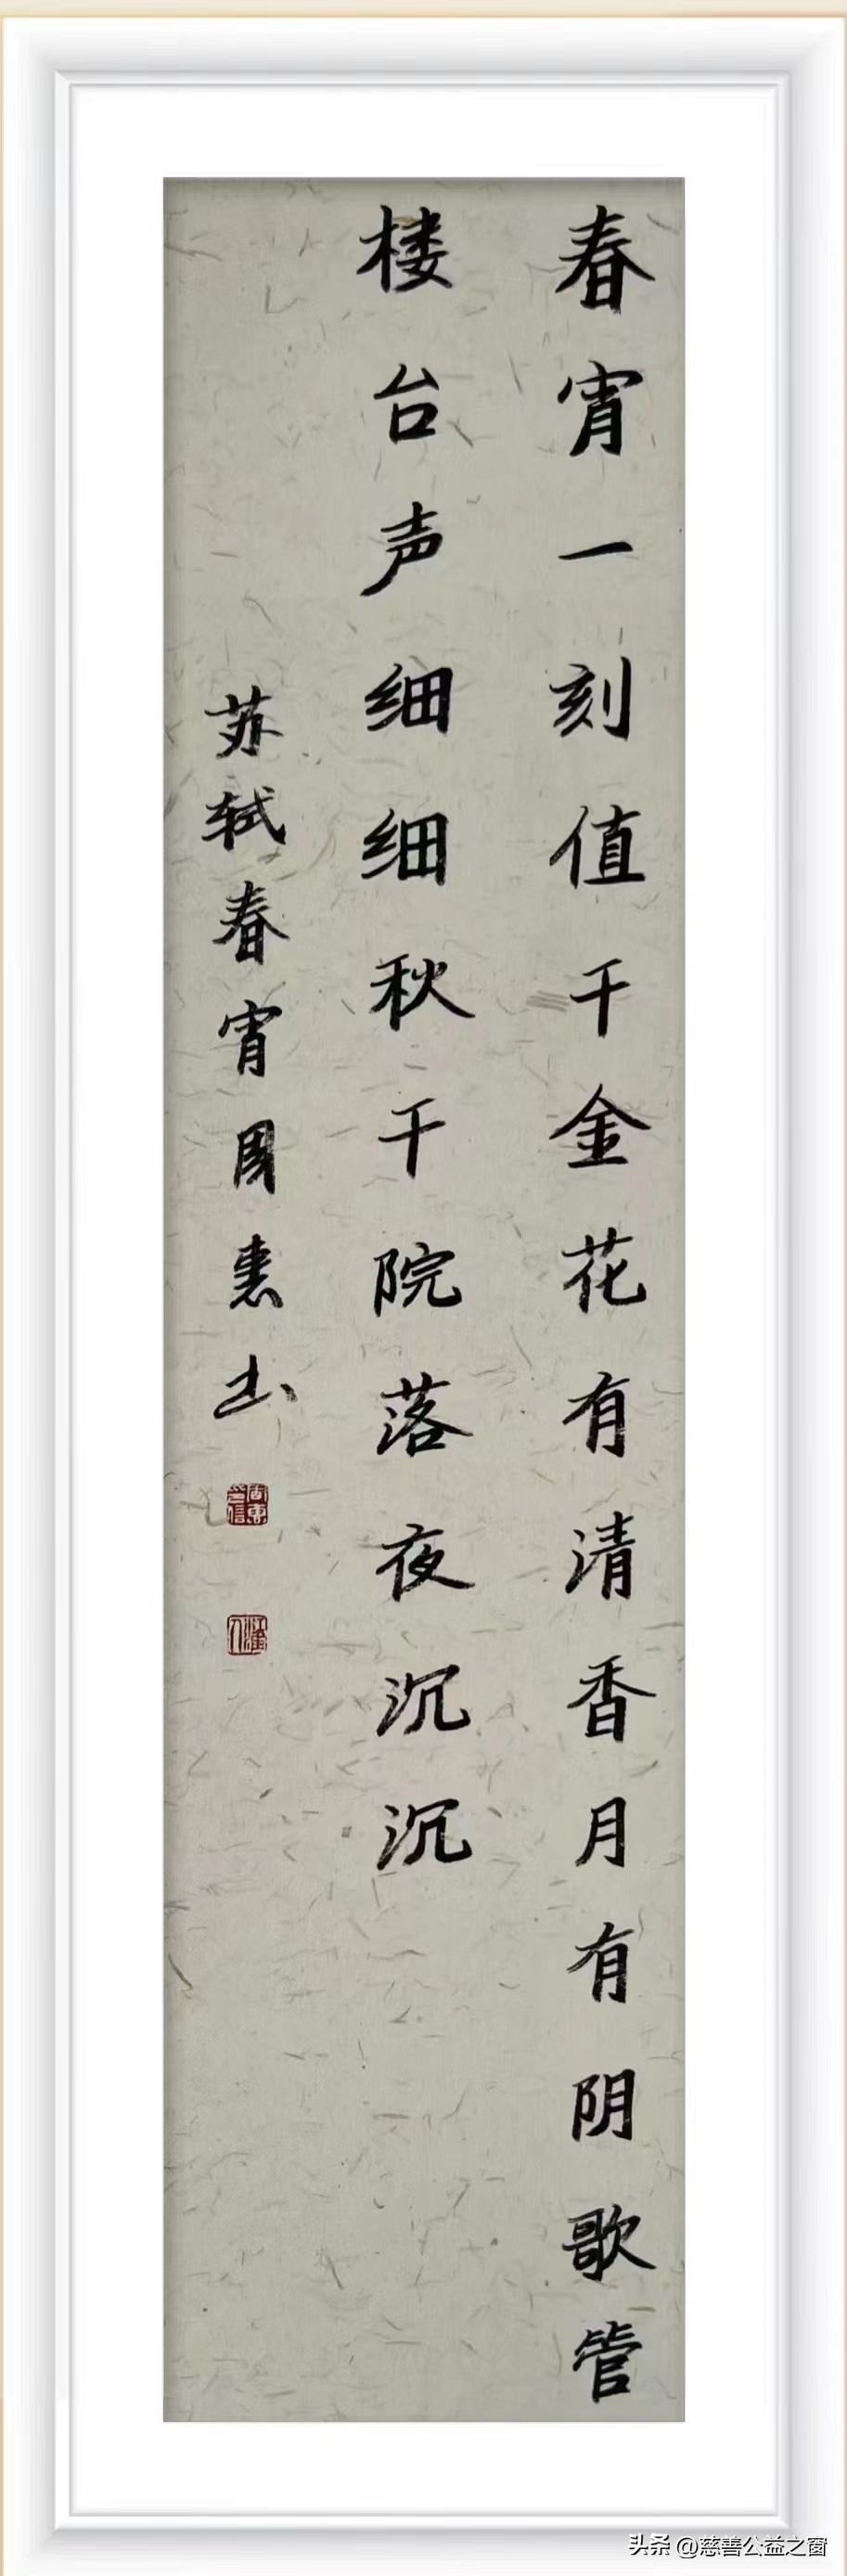 春宵一刻值千金花有清香月有阴歌管
楼台声细细秋千院落夜沉沉
苏轼春宵周惠书
头条 @慈善公益之窗